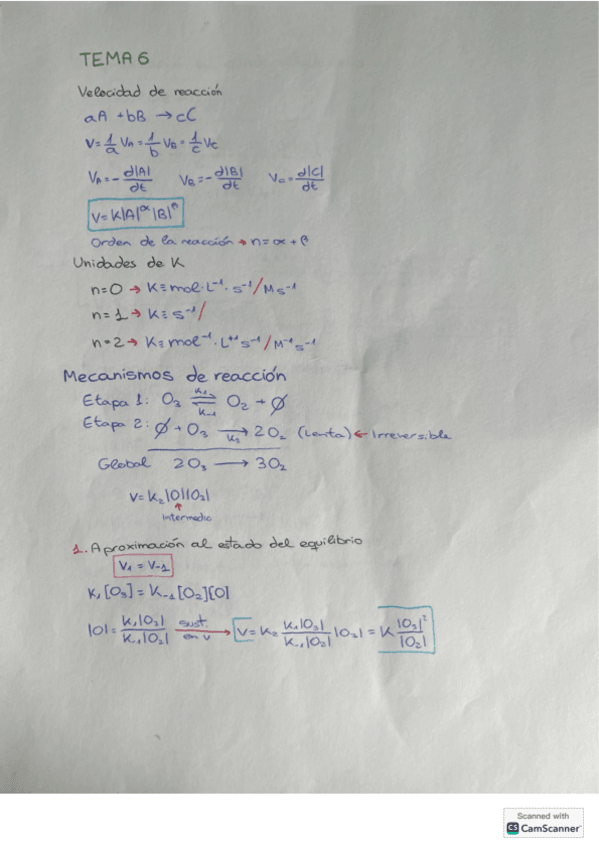 TEMA 6
Velocidad de reacción
aA + bB → cC
V = 1/a VA = 1/b VB = 1/c VC
VA = - d|A|/dt   VB = - d|B|/dt   VC = d|C|/dt
V = K|A|^α |B|^β
Orden de la reacción → n = α + β
Unidades de K
n=0 → K ≡ mol·L⁻¹·s⁻¹ / M s⁻¹
n=1 → K ≡ s⁻¹ /
n=2 → K ≡ mol⁻¹·L⁺¹ s⁻¹ / M⁻¹ s⁻¹
Mecanismos de reacción
Etapa 1: O₃ ⇌ O₂ + O   K₁   K₋₁
Etapa 2: O + O₃ → 2O₂ (Lenta) ← Irreversible   K₂
Global 2O₃ → 3O₂
V = K₂|O||O₃|
↑
Intermedio
1. Aproximación al estado del equilibrio
V₁ = V₋₁
K₁[O₃] = K₋₁[O₂][O]
|O| = K₁|O₃| / K₋₁|O₂|   sust. en v →   V = K₂ K₁|O₃| / K₋₁|O₂| |O₃| = K |O₃|² / |O₂|
Scanned with
CS CamScanner